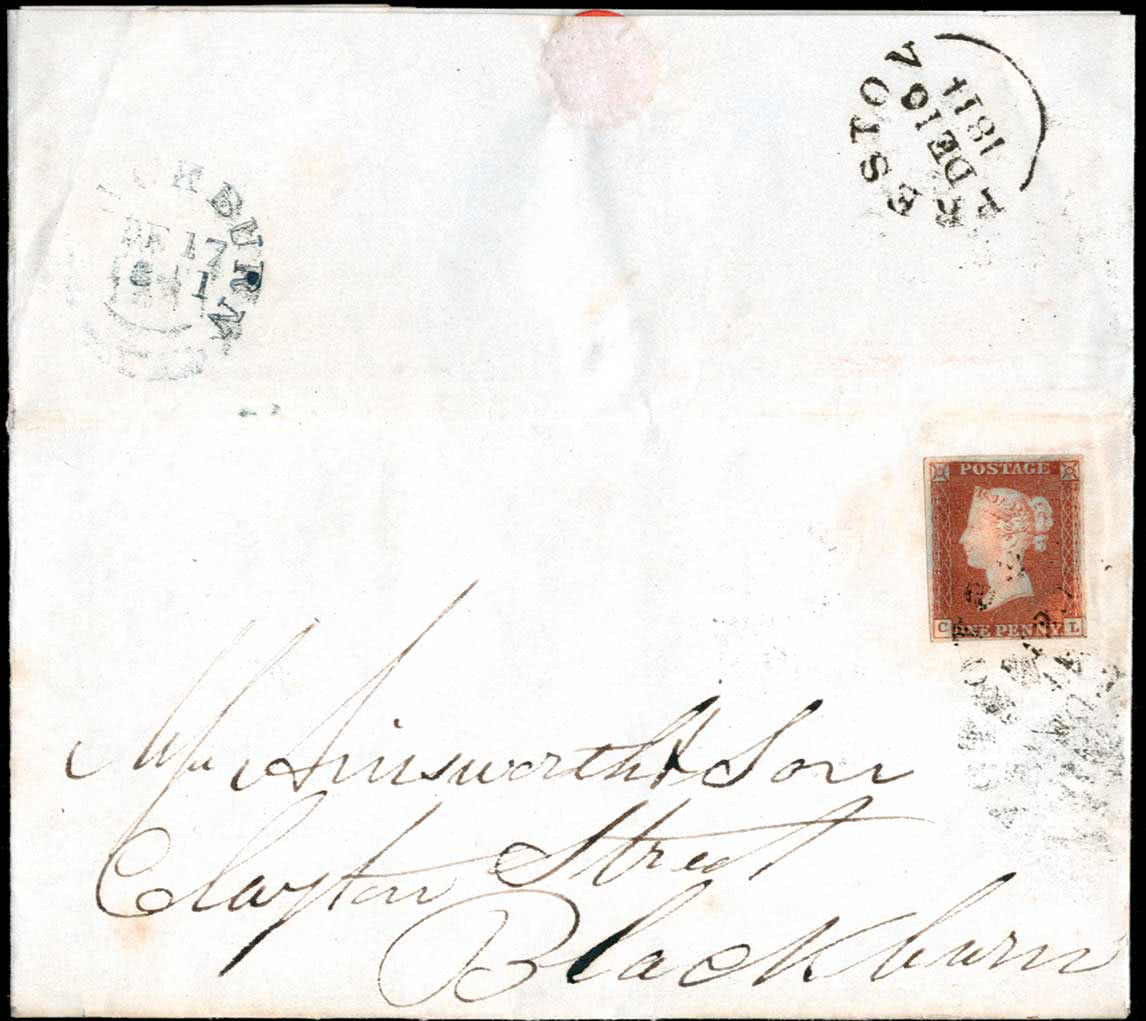 PRESTON
DE 16
1844
KBURN
DE 17
POSTAGE
C ONE PENNY L
Ainsworth & Son
Clayton Street
Blackburn